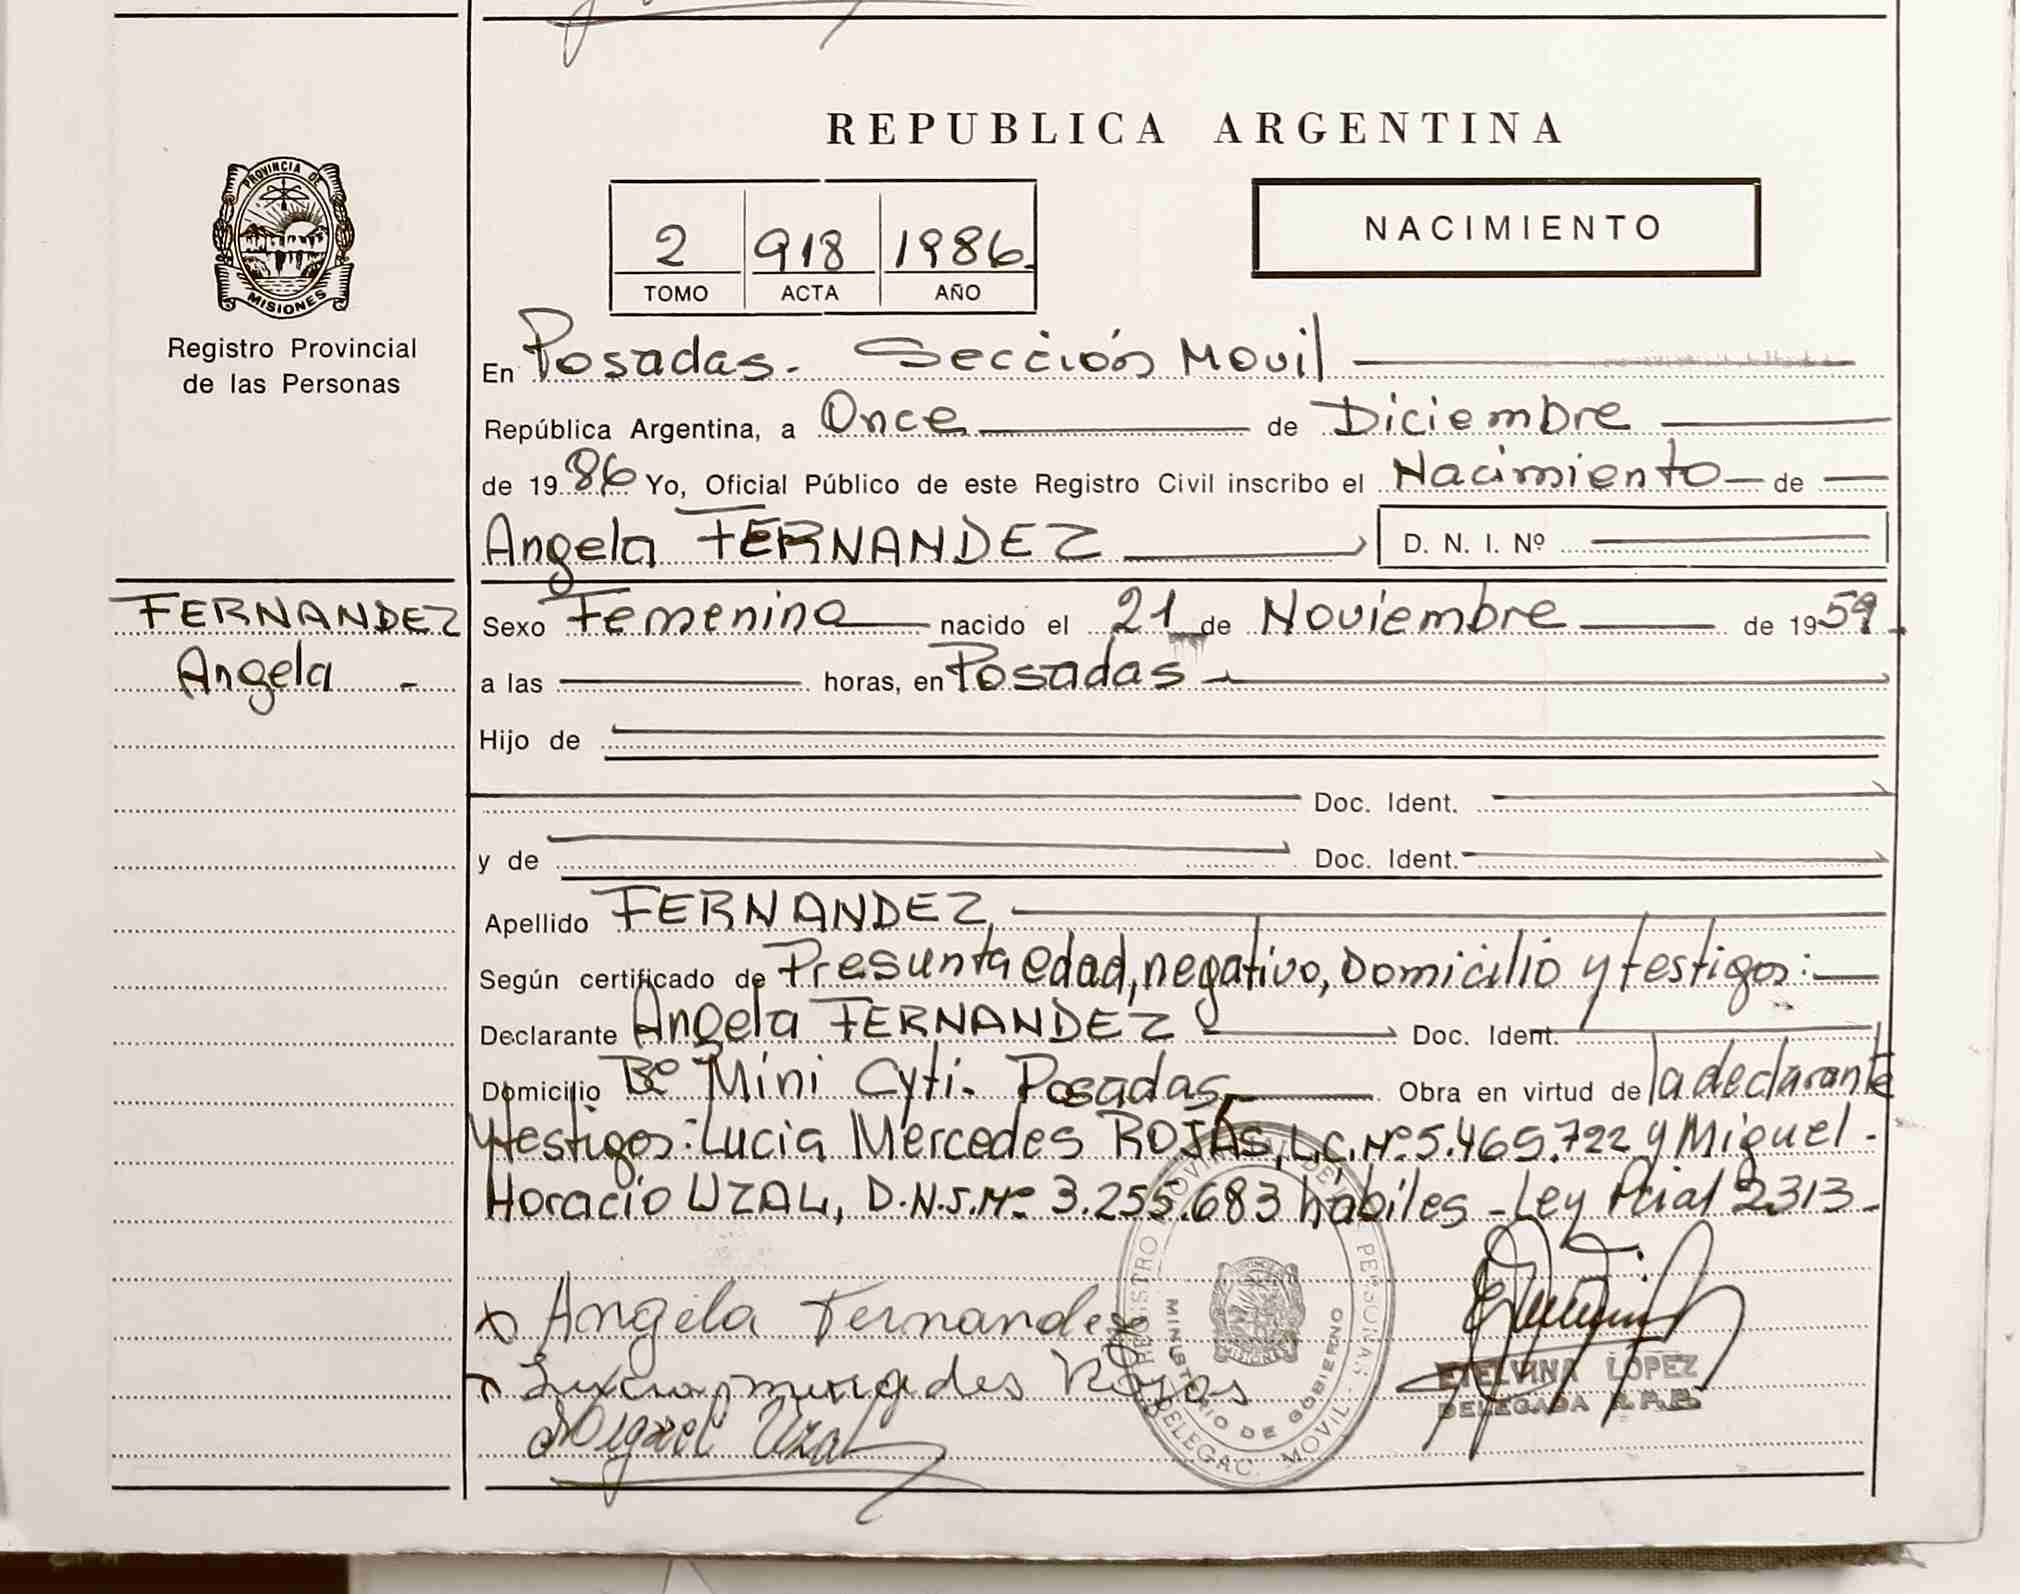 REPUBLICA ARGENTINA
PROVINCIA DE
MISIONES
Registro Provincial
de las Personas
2 918 1986
TOMO ACTA AÑO
NACIMIENTO
En Posadas. Sección Movil
República Argentina, a Once de Diciembre
de 1986 Yo, Oficial Público de este Registro Civil inscribo el Nacimiento de
Angela FERNANDEZ D. N. I. Nº
FERNANDEZ
Angela -
Sexo Femenino nacido el 21 de Noviembre de 1959.
a las horas, en Posadas
Hijo de
Doc. Ident.
y de Doc. Ident.
Apellido FERNANDEZ
Según certificado de Presunta edad, negativo, Domicilio y testigos:
Declarante Angela FERNANDEZ Doc. Ident.
Domicilio Bº Mini Cyti. Posadas Obra en virtud de la declarante
y testigos: Lucia Mercedes ROJAS, L.C. Nº 5.465.722 y Miguel -
Horacio UZAL, D.N.I. Nº 3.255.683 hábiles - Ley Pcial 2313 -
Angela Fernandez
Rojas
Miguel Uzal
REGISTRO PROVINCIAL DE LAS PERSONAS - DELEGAC. MOVIL -
MINISTERIO DE GOBIERNO
MISIONES
ETELVINA LOPEZ
DELEGADA R.P.P.